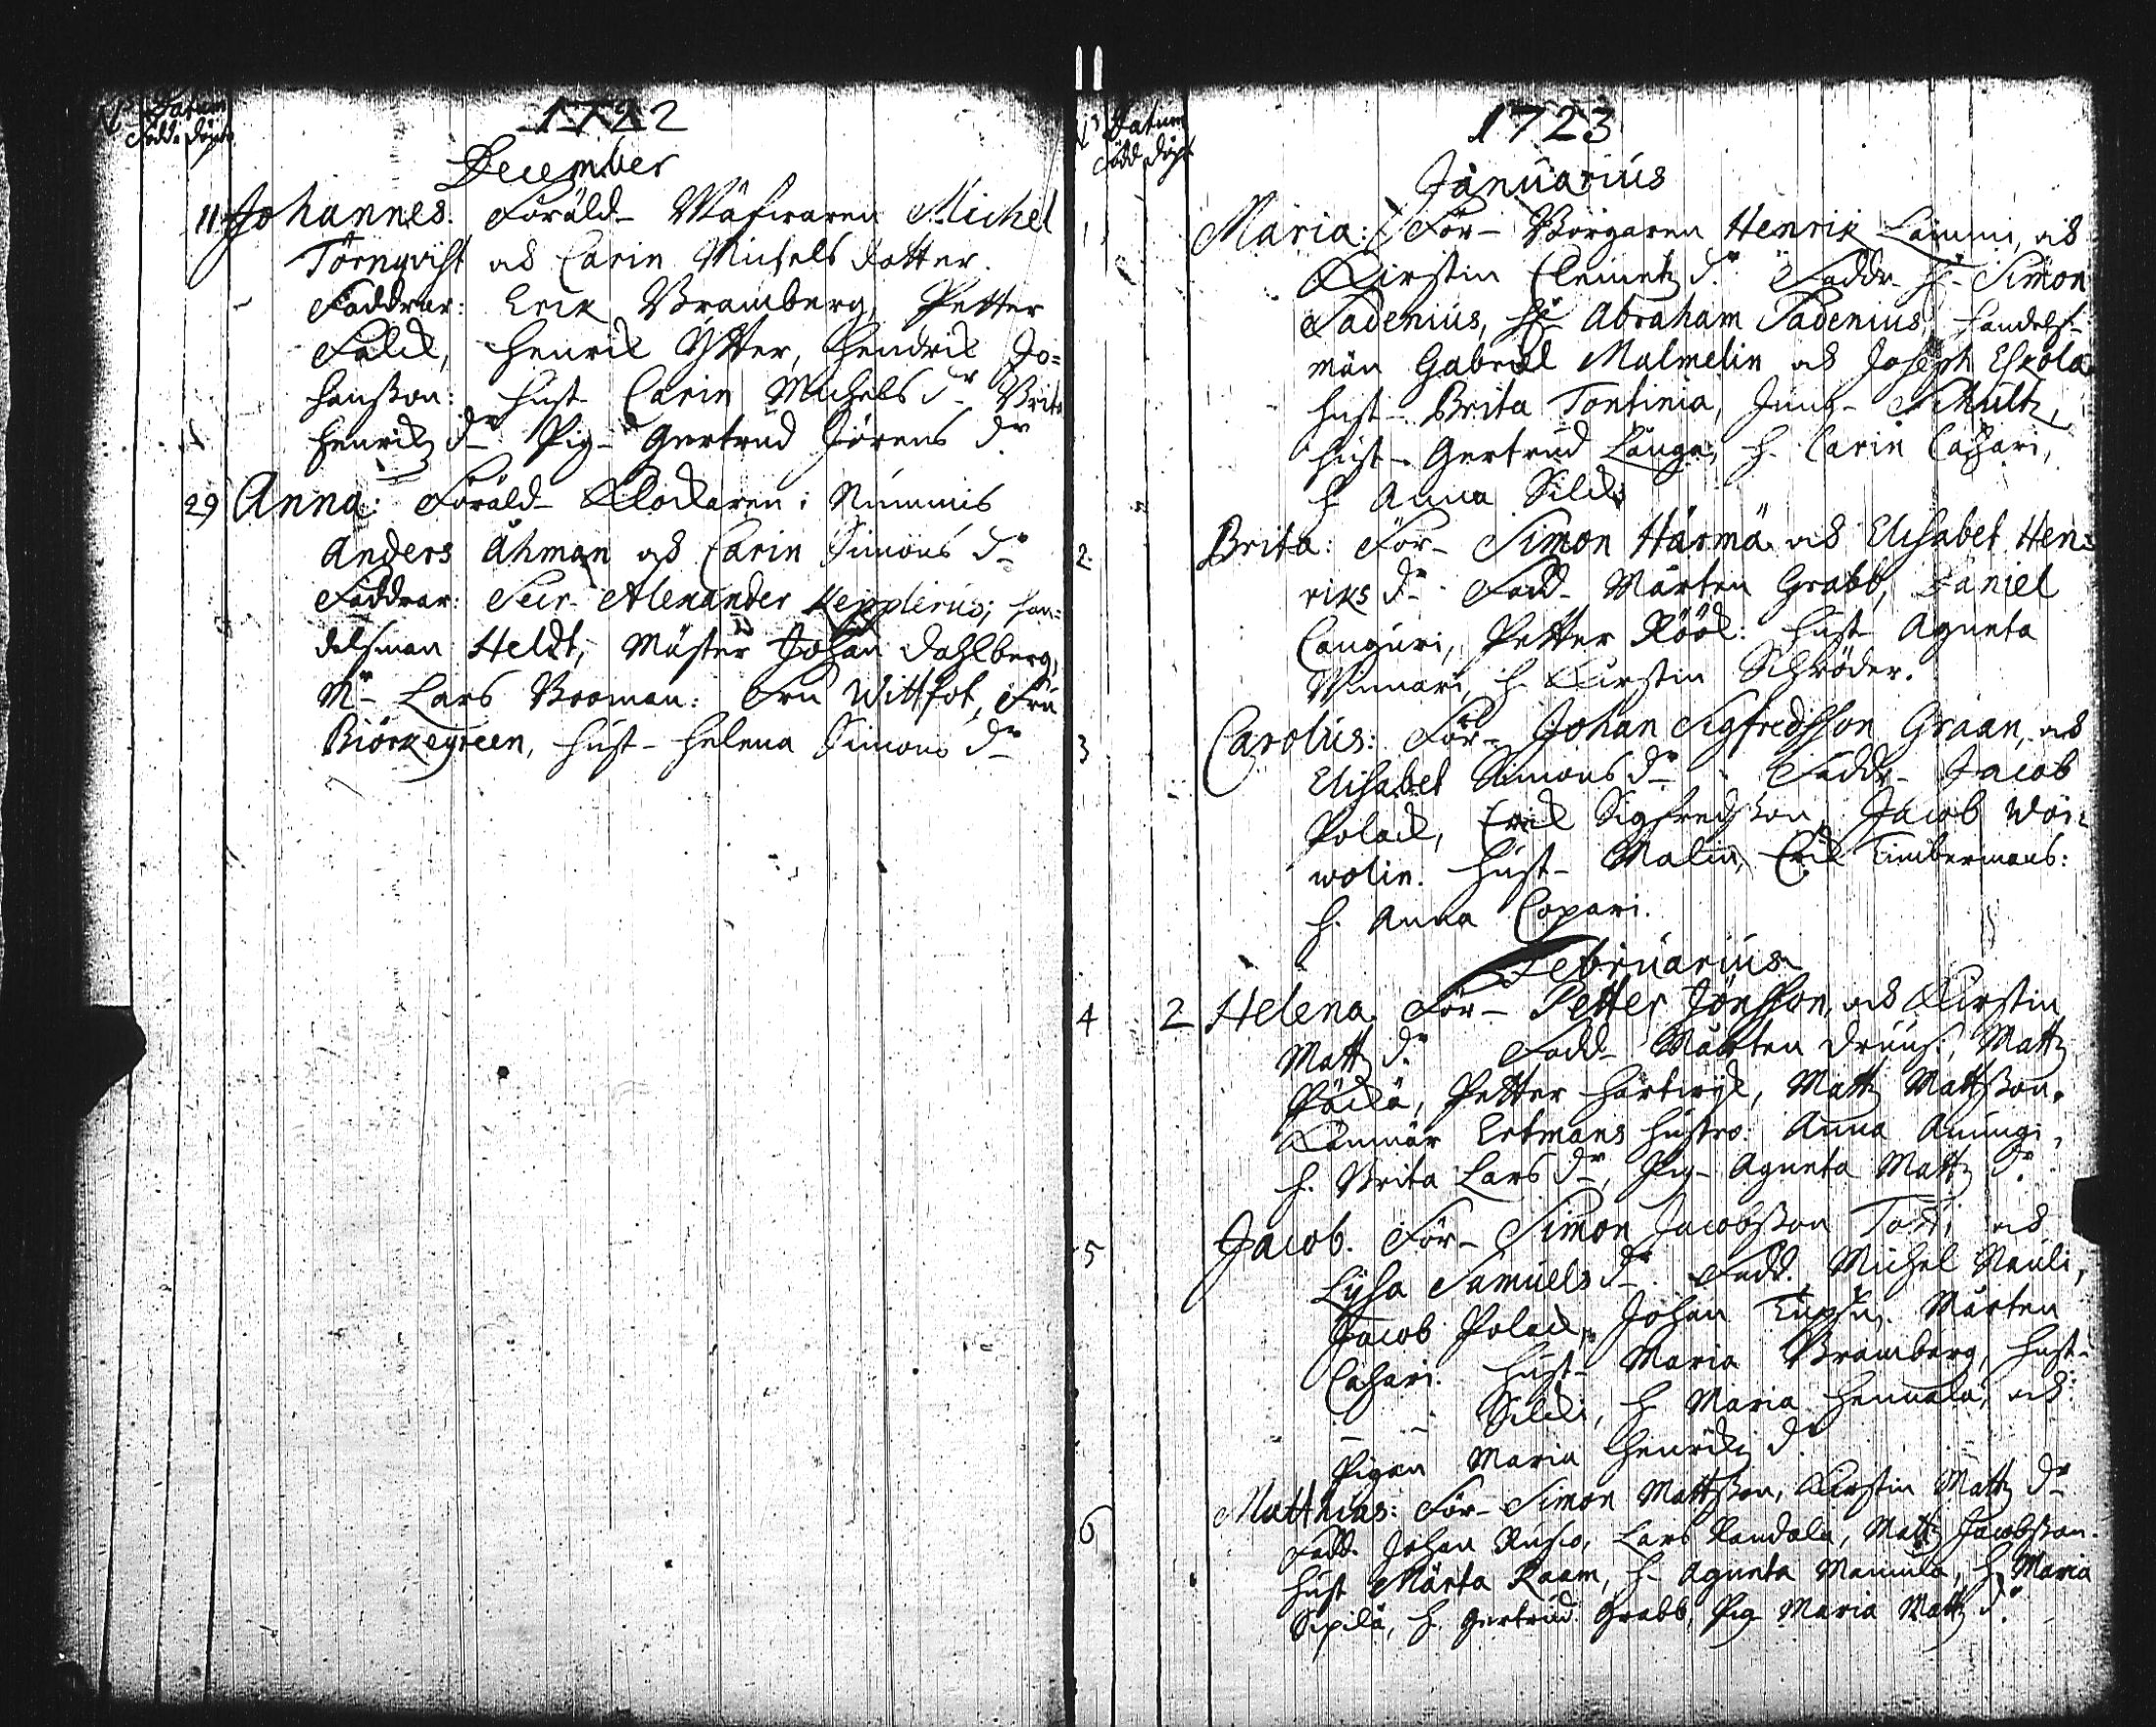 N° Datum
Född. döpt.
1722
December
11 Johannes. Föräld- Wäfwaren Michel
Törnqvist och Carin Michels dotter.
Faddrar: Erik Bramberg, Petter
Falck, Henrik Ytter, Hendrik Jo=
hansson: hust- Carin Michels dr Brita
Henrikz dr Pig- Gertrud Jörens dr
29 Anna: Föräld- Klockaren i Nummis
Anders Åhman och Carin Simons dr
Faddrar: Secr- Alexander Kepplerus; han-
delsman Heldt, Mäster Johan Dahlberg,
Mr Lars Booman: Fru Wittfot, Fru
Biörkegreen, hust- Helena Simons dr
N° Datum
Född döpt
1723
Januarius
1 Maria: För- Borgaren Henrik Lammi, och
Kirstin Clemetz dr. Faddr- Hr Simon
Padenius, Hr Abraham Padenius, handels-
män Gabriel Malmelin och Joseph Eskola
hust- Brita Tontinia, Jung- Schultz,
hust- Gertrud Långa, h. Carin Cajari,
h Anna
2 Brita: För- Simon Härmä och Elisabet Hen=
riks dr. Fadd- Mårten Grabb, Daniel
Canguri, Petter Röök: hust Agneta
h. Kirstin Schröder.
3 Carolus: För- Johan Sigfredsson Graan, och
Elisabet Simons dr. Faddr- Jacob
Polack, Erik Sigfredsson, Jacob Woi=
wolin. hust- Malin, Erik Timbermans:
h. Anna
Februarius
4 2 Helena. För- Petter Jönsson, och Kirstin
Mattz dr. Fadd- Mårten Druus, Mattz
Päckä, Petter Hartwijk, Mattz Mattsson.
Kämnär Ertmans hustro: Anna
h. Brita Lars dr, Pig- Agneta Mattz dr.
5 Jacob. För- Simon Jacobsson och
Lijsa Samuels dr. Fadd. Michel Nauli,
Jacob Polack, Johan Mårten
Cajari. hust- Maria Bramberg, hust-
- - h Maria Hennala, och
Pigan Maria Henrikz dr.
6 Matthias: För- Simon Mattsson, Kirstin Mattz dr
Fadd. Johan Rusko, Lars Randala, Mattz Jacobsson.
hust Märta Raam, h- Agneta Mannula, h. Maria
Sipilä, h. Gertrud Grabb, Pig Maria Mattz dr.